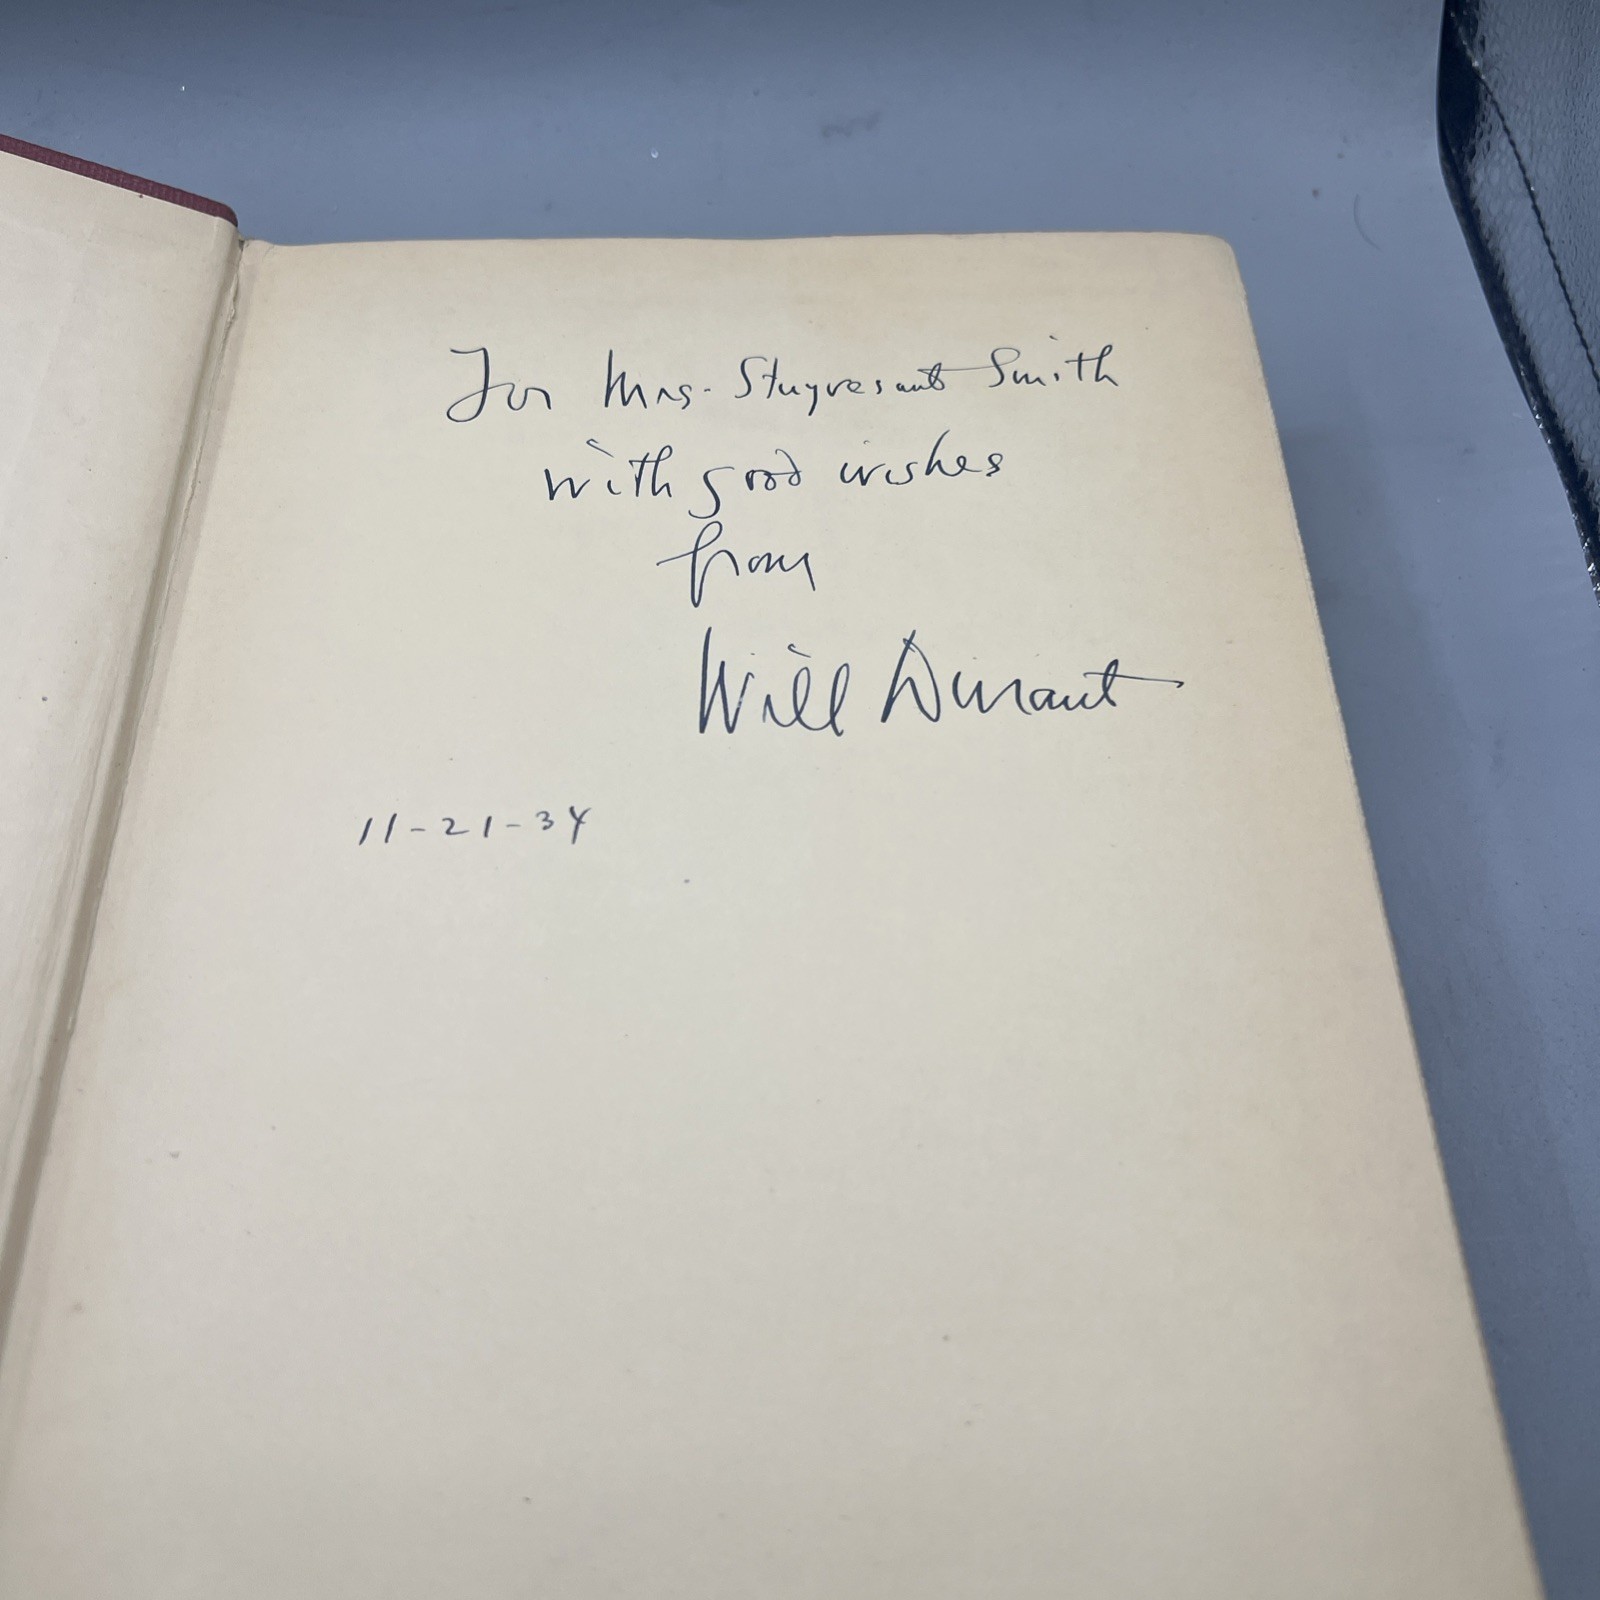 For Mrs. Stuyvesant Smith
with good wishes
from
Will Durant
11-21-34